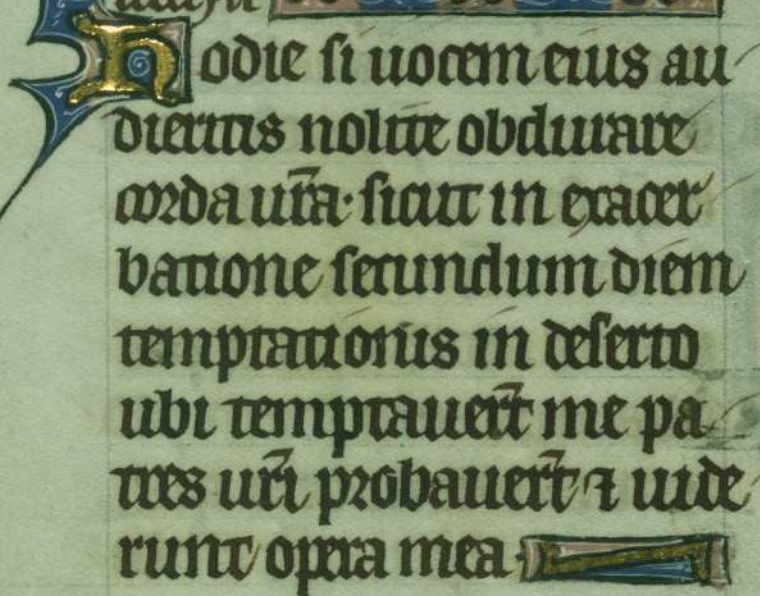 Hodie si uocem eius au
dieritis nolite obdurare
corda ur̄a· sicut in exacer
batione secundum diem
temptationis in deserto
ubi temptauer̄t me pa
tres ur̄i probauer̄t ⁊ uide
runt opera mea